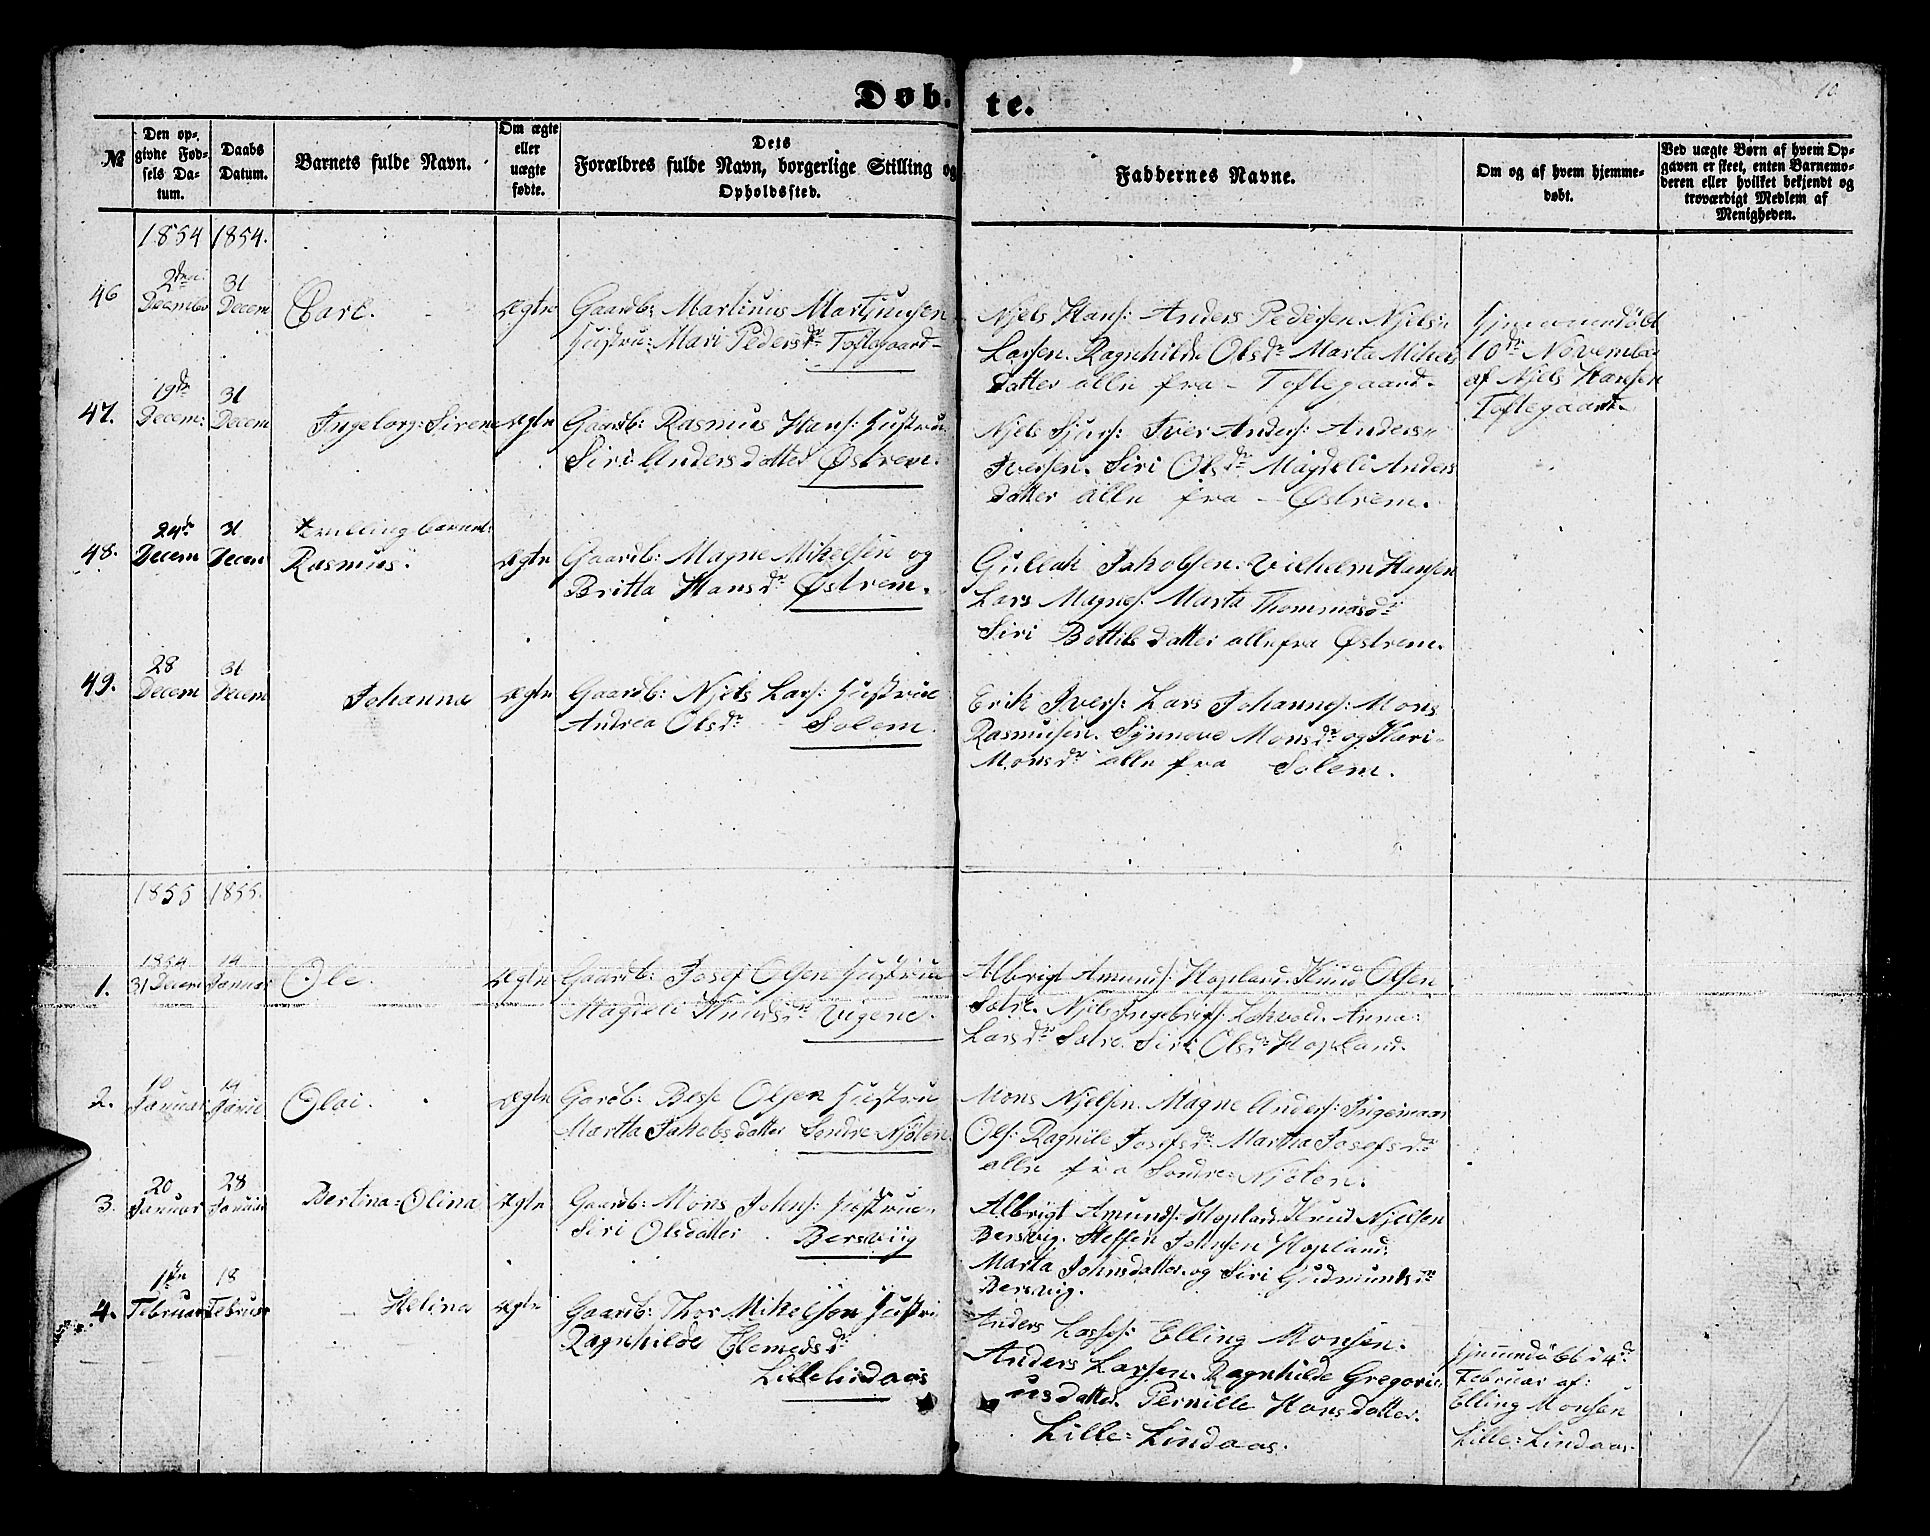 Døb-te.
10
№
Den op-
givne Fød-
sels Da-
tum.
Daabs
Datum.
Barnets fulde Navn.
Om ægte
eller
uægte
fødte.
Dets
Forældres fulde Navn, borgerlige Stilling og
Opholdssted.
Faddernes Navne.
Om og af hvem hjemme-
døbt.
Ved uægte Børn af hvem Op-
gaven er skeet, enten Barnemo-
deren eller hvilket bekjendt og
troværdigt Medlem af
Menigheden.
1854 1854.
46
Decembr
31
Decem
Carl.
Ægte
Gaardb: Martinus Martinusen
Hustru: Mari Pedersdr Toftegaard
Njels Hans: Anders Pedersen. Njels
Larsen. Ragnhilde Olsdr Marta Mikels
datter alle fra - Toftegaard.
Hjemmedøbt
10de November
af Njels Hansen
Toftegaard.
47.
19de
Decem:
31
Decem
Ingeborg: Siren
Ægte
Gaardb: Rasmus Hans: Hustru
Siri Andersdatter Østrem.
Njels Sjurs: Iver Anders: Anders
Iversen. Siri Olsdr Magdeli Anders
datter alle fra - Østrem.
48.
24de
Decem
31
Decem
Tvillingbarnet:
Rasmus.
Ægte
Gaardb: Magne Mikelsen og
Britta Hansdr Østrem.
Gullak Jakobsen: Vilhelm Hansen
Lars Magnes. Marta Thommasdr
Siri Bottilsdatter alle fra Østrem.
49.
28
Decem
31
Decem
Johanna
Ægte
Gaardb: Njels Lars: Hustrue
Andrea Olsdr Solem.
Erik Ivers: Lars Johannes: Mons
Rasmusen. Synneve Monsdr og Kari
Monsdr alle fra Solem.
1855 1855.
1.
1854
31 Decem
14
Januar
Ole.
Ægte
Gaardb: Josef Olsen Hustrue
Magdeli Knudsdr Vigene.
Albrigt Amunds: Hopland. Knud Olsen
Solre. Njels Ingebrigts: Lekvold. Anna
Larsdr Solre. Siri Olsdr Hopland.
2.
10
Januar
14
Januar
Olai.
Ægte
Gardb: Besse Olsen Hustru
Martha Jakobsdatter Søndre Njøten
Mons Njelsen. Magne Anders: Ingemar
Ols: Ragnile Josefsdr Martha Josefsdr
alle fra Søndre: Njøten.
3.
20
Januar
28
Januar
Bertina: Olina
Ægte
Gaardb: Mons Johns: Hustrue
Siri Olsdatter Bersviig
Albrigt Amunds: Hopland Knud Njelsen
Bersvig. Steffen Johnsen Hopland.
Marta Johnsdatter. og Siri Gudmundsdr
Bersvig.
4.
1de
Februar
18
Februar
Helina
Ægte
Gaardb: Thor Mikelsen Hustru
Ragnhilde Clemedsdr
Lillelindaas
Anders Lasses: Elling Monsen.
Anders Larsen. Ragnhilde Gregori
usdatter. Pernille Hansdatter.
Lille: Lindaas.
Hjemmedøbt d 4de
Februar af:
Elling Monsen
Lille: Lindaas.